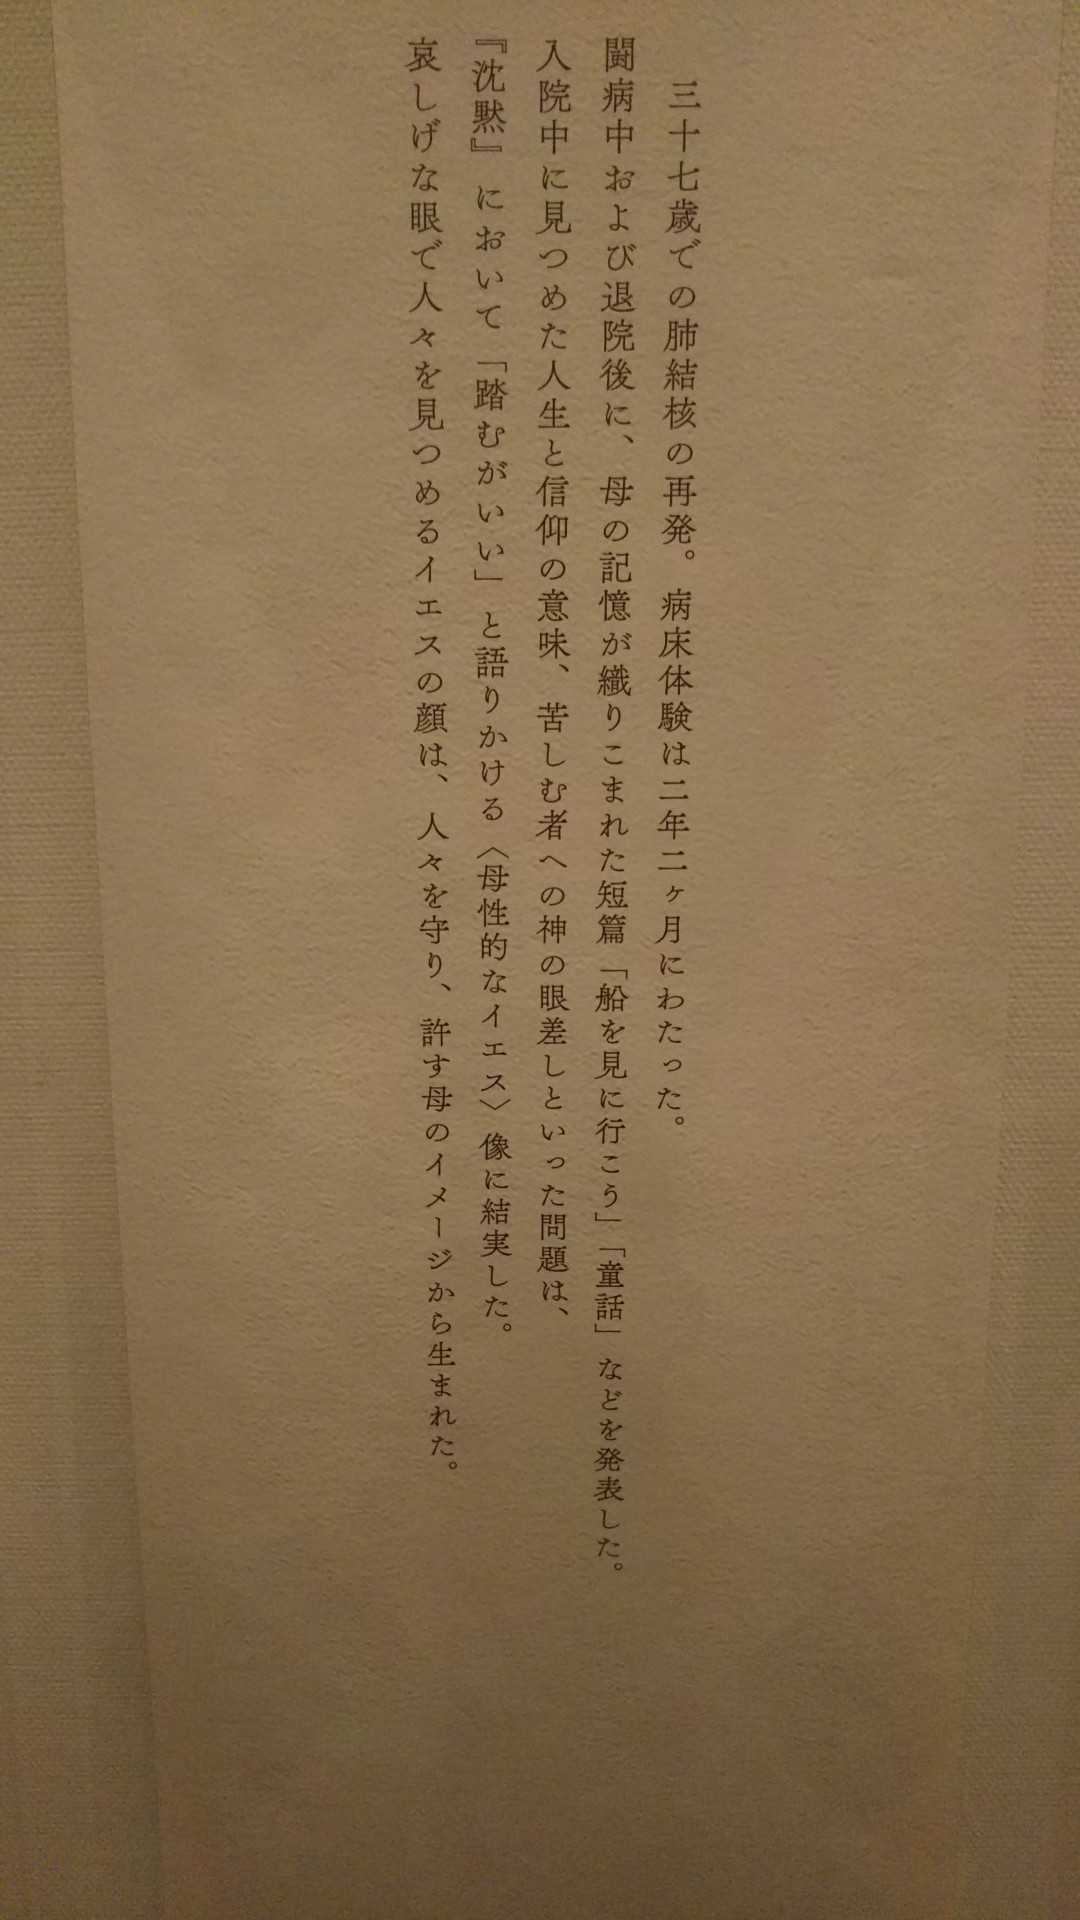 三十七歳での肺結核の再発。病床体験は二年二ヶ月にわたった。
闘病中および退院後に、母の記憶が織りこまれた短篇「船を見に行こう」「童話」などを発表した。
入院中に見つめた人生と信仰の意味、苦しむ者への神の眼差しといった問題は、
『沈黙』において「踏むがいい」と語りかける〈母性的なイエス〉像に結実した。
哀しげな眼で人々を見つめるイエスの顔は、人々を守り、許す母のイメージから生まれた。